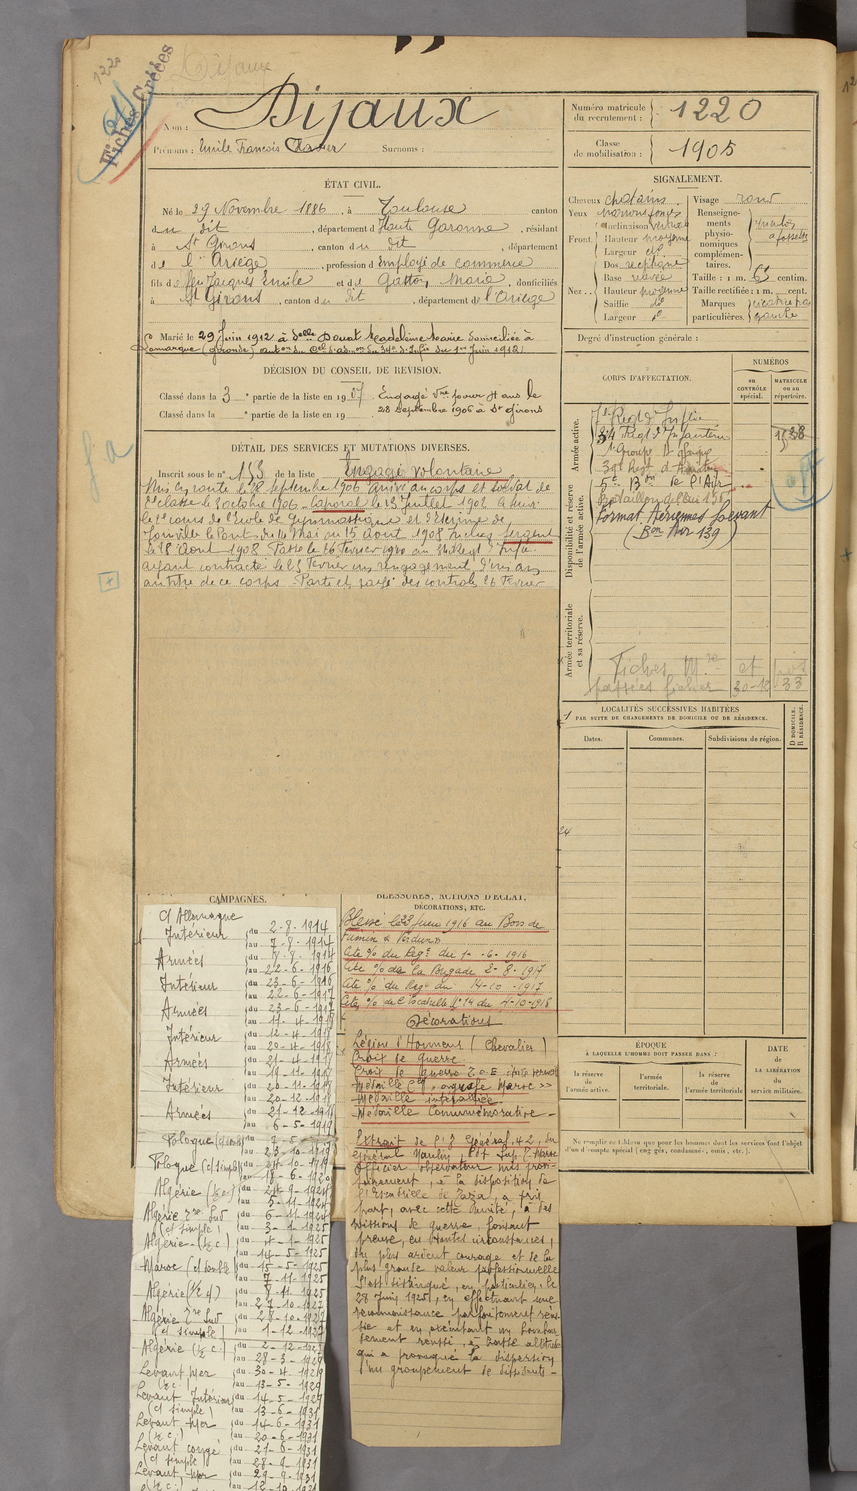 1220
Dijaux
Fiches Créées
Nom :
Dijaux
Prénoms : Emile François Xavier Surnoms :
Numéro matricule du recrutement : 1220
Classe de mobilisation : 1905
ÉTAT CIVIL.
Né le 29 Novembre 1886, à Toulouse canton
du dit, départemen t d Haute Garonne, résidant
à St Girons, canton du dit, département
de l'Ariège, profession d'employé de commerce
fils de feu Jacques Emile et de Gaston Maria, domiciliés
à St Girons, canton du dit, département de l'Ariège
Marié le 29 Juin 1912 à Delle Donat Madeleine Marie domiciliée à
Lamarque (Gironde) auton du Cel d'admon du 34e d'Infie du 1er Juin 1912
DÉCISION DU CONSEIL DE REVISION.
Classé dans la 3e partie de la liste en 1907 Engagé Vre pour 4 ans le
Classé dans la e partie de la liste en 19 28 Septembre 1906 à St Girons
DÉTAIL DES SERVICES ET MUTATIONS DIVERSES.
Inscrit sous le n° 153 de la liste Engagé volontaire
Mis en route le 28 septembre 1906 arrivé au corps et soldat de
2e classe le 3 octobre 1906. Caporal le 13 Juillet 1907. A suivi
le cours de l'Ecole de Gymnastique et d'Escrime de
Joinville le Pont, du 14 Mai au 15 Août 1908
Sergent
le 18 Août 1908. Passé le 16 Février 1910 au 34 Regt d'Infie
ayant contracté le 15 Février un rengagement d'un an
au titre de ce corps. Parti et rayé des controles 16 Février
SIGNALEMENT.
Cheveux chatains
Yeux marrons foncés
Front Inclinaison verticale
Hauteur moyenne
Largeur do
Nez Dos rectiligne
Base relevée
Hauteur moyenne
Saillie do
Largeur do
Visage rond
Renseignements physionomiques complémentaires. menton à fossette
Taille : 1 m. 65 centim.
Taille rectifiée : 1 m. cent.
Marques particulières. cicatrice
gauche
Degré d'instruction générale :
CORPS D'AFFECTATION.
NUMÉROS
au CONTRÔLE spécial.
MATRICULE ou au répertoire.
Armée active.
Regt d'Infie
34 Regt d'Infanterie
1er Groupe
Bon de l'Air
Bataillon de l'Air
Format. Aériennes Levant
(Bon Air 139)
Disponibilité et réserve de l'armée active.
Armée territoriale et sa réserve.
Fiches Mre et
passées fichier 30-12 33
LOCALITÉS SUCCESSIVES HABITÉES
PAR SUITE DE CHANGEMENTS DE DOMICILE OU DE RÉSIDENCE.
Dates. Communes. Subdivisions de région. D DOMICILE. R RÉSIDENCE.
ÉPOQUE
À LAQUELLE L'HOMME DOIT PASSER DANS :
la réserve de l'armée active. l'armée territoriale. la réserve de l'armée territoriale.
DATE DE LA LIBÉRATION du service militaire.
Ne remplir ce tableau que pour les hommes dont les services font l'objet
d'un décompte spécial (engagés, condamnés, omis, etc.).
CAMPAGNES.
C/ Allemagne
Intérieur du 2-8-1914
au 7-8-1914
Armées du 8-8-1914
au 22-6-1916
Intérieur du 23-6-1916
au 22-6-1917
Armées du 23-6-1917
au 11-4-1918
Intérieur du 12-4-1918
au 20-4-1918
Armées du 21-4-1918
au 19-11-1918
Intérieur du 20-11-1918
au 20-12-1918
Armées du 21-12-1918
au 6-5-1919
Pologne (c/ double) du 7-5-
au 23-10-1919
Pologne (c/ simple) du 24-10-1919
au 18-6-1920
Algérie (½ c.) du 24-9-1924
au 5-11-1924
Algérie Zre Sud du 6-11-1924
(c/ simple) au 3-1-1925
Algérie (½ c.) du 4-1-1925
au 14-5-1925
Maroc (c/ double) du 15-5-1925
au 7-11-1925
Algérie (½ c/) du 8-11-1925
au 27-10-1927
Algérie Zre Sud du 28-10-1927
(c/ simple) au 1-12-1927
Algérie (½ c.) du 2-12-1927
au 28-3-1929
Levant Mer du 30-4-1929
(½ c.) au 13-5-1929
Levant Intérieur du 14-5-1929
(c/ simple) au 13-6-1931
Levant Mer du 14-6-1931
(½ c.) au 20-6-1931
Levant congé du 21-6-1931
c/ simple au 28-9-1931
Levant Mer du 29-9-1931
(½ c.) au 12-10-1931
BLESSURES, ACTIONS D'ÉCLAT, DÉCORATIONS, ETC.
Blessé le 23 Juin 1916 au Bois de
Fumin à Verdun
Cité % du Regt du 1-6-1916
Cité % de la Brigade 2-8-1917
Cité % du Regt du 14-10-1917
Cité % de l'Escadrille N° 14 du 4-10-1918
Décorations
Légion d'Honneur (Chevalier)
Croix de guerre
Croix de Guerre T.O.E.
Médaille Cle agrafe "Maroc"
Médaille interalliée
Médaille Commémorative
Extrait de l'O Général 42 du
général Naulin, Cdt Sup. T. Maroc
Officier observateur mis provisoirement, à la disposition de
l'Escadrille de Taza, a pris
part, avec cette Unité, à des
missions de guerre, faisant
preuve, en toutes circonstances,
du plus ardent courage et de la
plus grande valeur professionnelle
S'est distingué, en particulier, le
28 Juin 1925, en effectuant une
reconnaissance parfaitement réussie
et en exécutant un bombardement réussi, à basse altitude
qui a provoqué la dispersion
d'un groupement de dissidents.